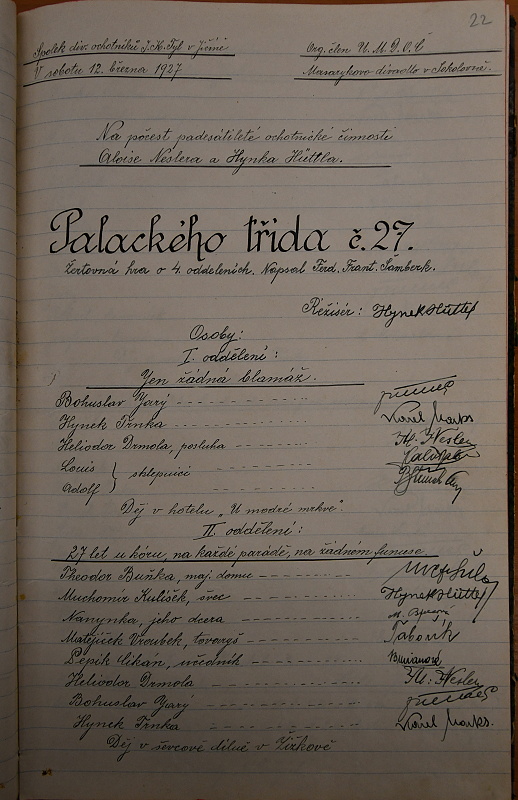 22
Spolek div. ochotníků J. K. Tyl v Jičíně
Org. člen Ú. M. D. O. Č
V sobotu 12. března 1927
Masarykovo divadlo v Sokolovně.
Na počest padesátileté ochotnické činnosti
Aloise Neslera a Hynka Hüttla.
Palackého třída č. 27.
Žertovná hra o 4. odděleních. Napsal Ferd. Frant. Šamberk.
Režisér: Hynek Hüttl
Osoby:
I. oddělení:
Jen žádná blamáž.
Bohuslav Jarý
Hynek Trnka Karel Marks
Heliodor Drmola, posluha Al. Nesler
Louis
Adolf } sklepníci
Děj v hotelu „U modré mrkve".
II. oddělení:
27 let u kóru, na každé parádě, na žádném funuse
Theodor Buňka, maj. domu
Muchomír Kulíšek, švec Hynek Hüttl
Nanynka, jeho dcera
Matějíček Vroubek, tovaryš Táborik
Pepík Cikan, učedník Burianová
Heliodor Drmola Al. Nesler
Bohuslav Jarý
Hynek Trnka Karel Marks.
Děj v ševcově dílně v Žižkově